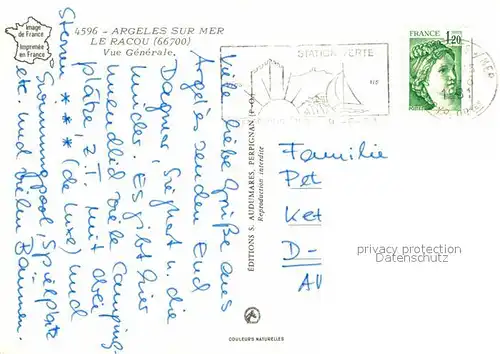 Image
de France
Imprimée
en France
4596 - ARGELES SUR MER
LE RACOU (66700)
Vue Générale.
STATION VERTE
FRANCE 1,20
Viele liebe Grüße aus
Argeles senden Euch
Dagmar, Siegbert u. die
Kinder. Es gibt hier
unendlich viele Camping-
plätze, z.T. mit drei
Sternen *** (de Luxe) und
Swimmingpool, Spielplatz
etc. und vielen Bäumen.
EDITIONS S. AUDUMARES, PERPIGNAN (P.-O.)
Reproduction interdite
Familie
Pet
Ket
D-
AU
privacy protection
Datenschutz
COULEURS NATURELLES